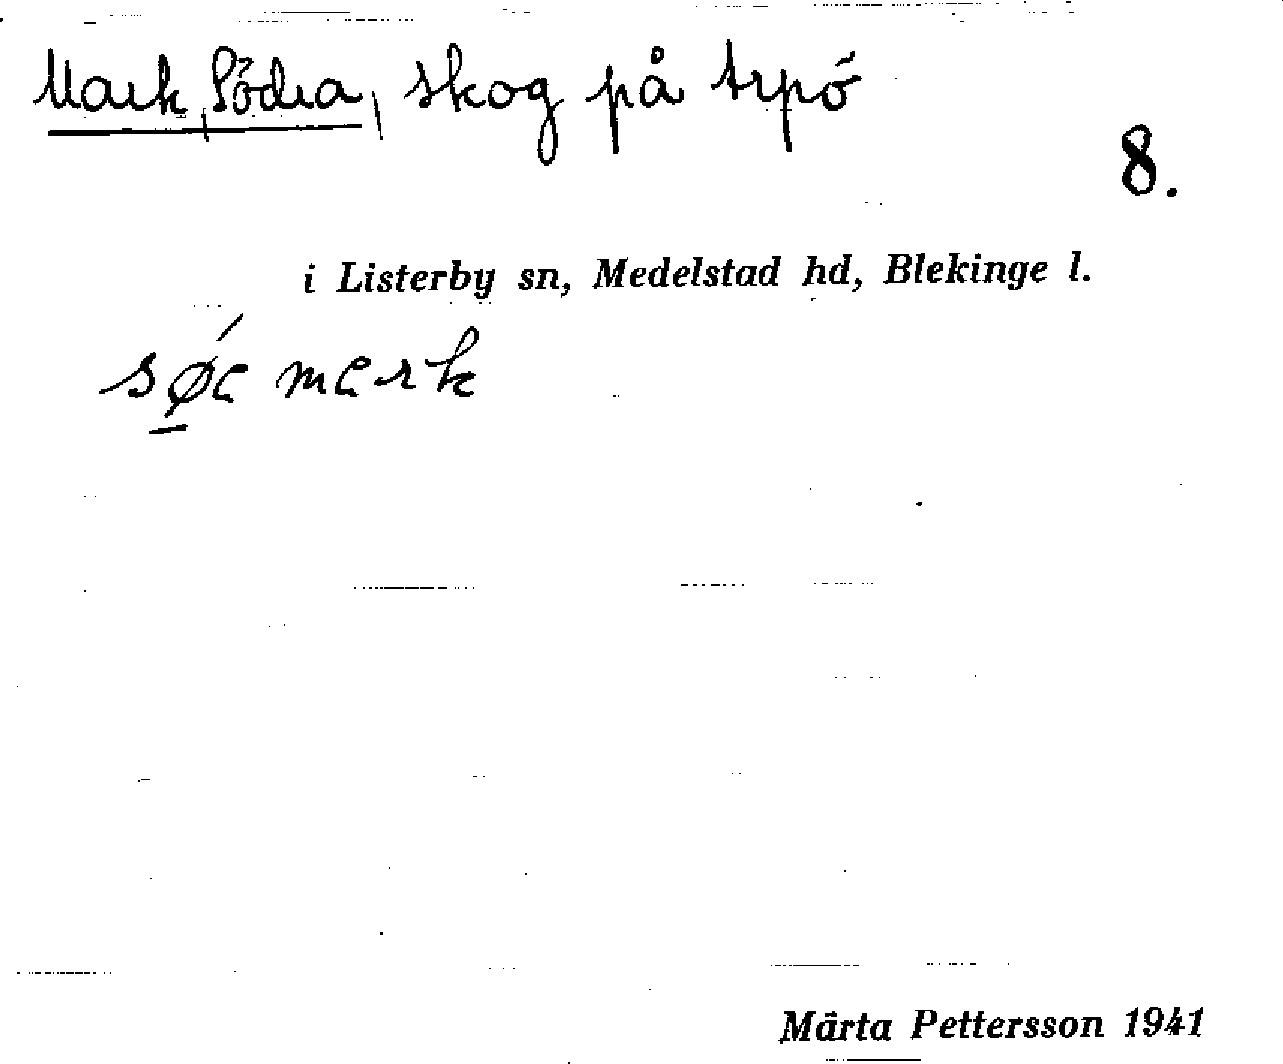 Mark, Södra, skog på Arpö
8.
i Listerby sn, Medelstad hd, Blekinge l.
mark
Märta Pettersson 1941